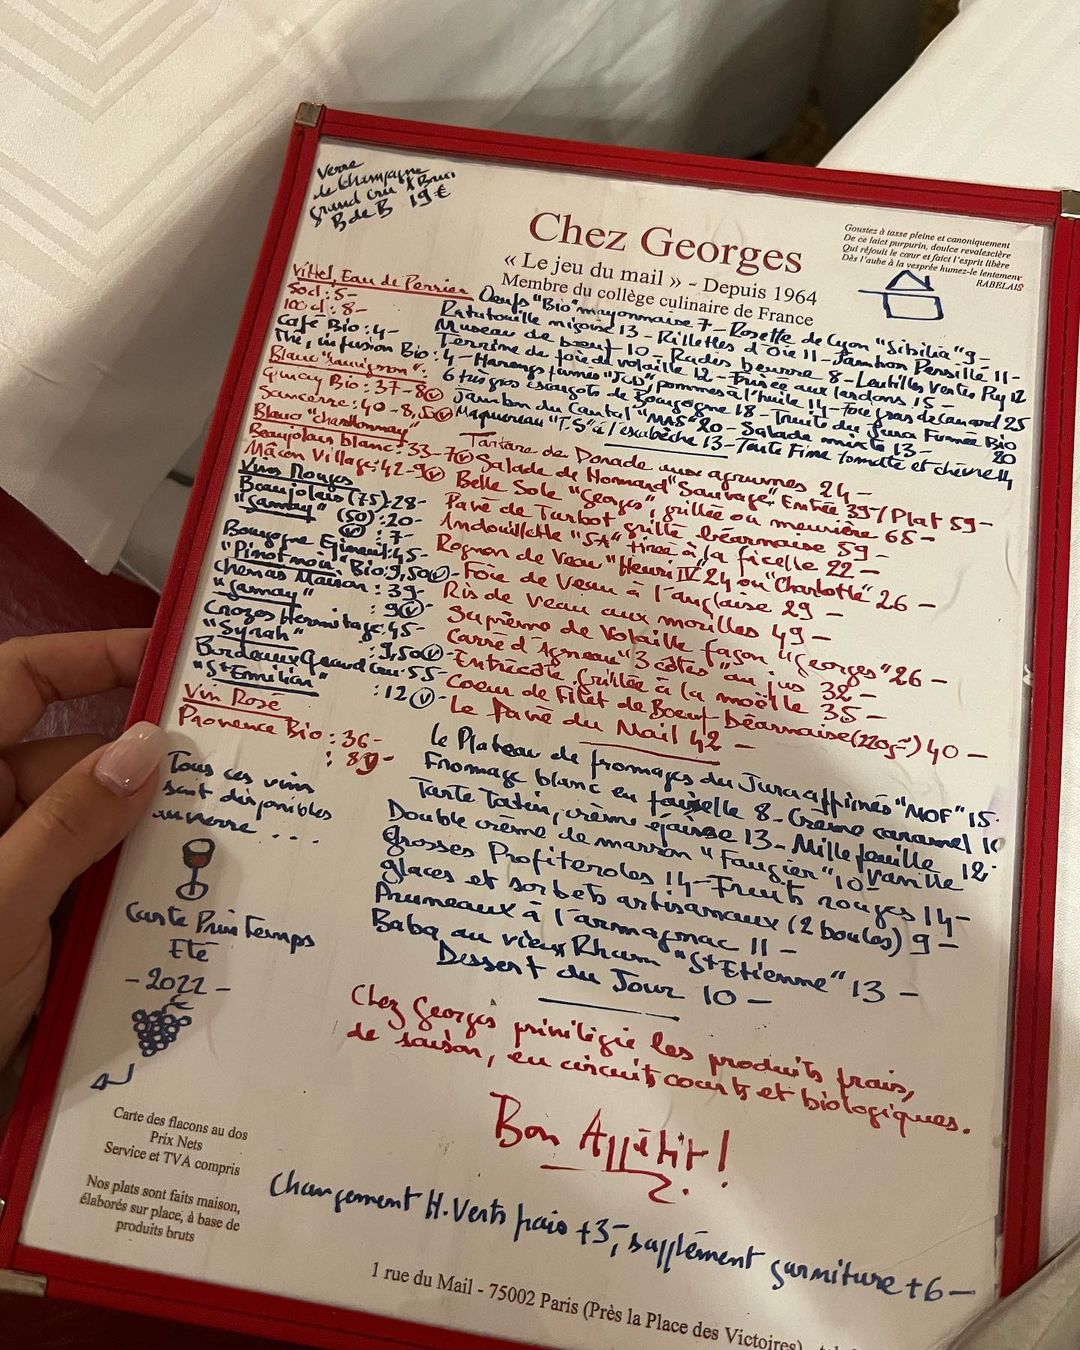 Verre
de Champagne
grand cru
B de B 19€
Chez Georges
« Le jeu du mail » - Depuis 1964
Membre du collège culinaire de France
Goustez à tasse pleine et canoniquement
De ce laict purpurin, doulce revalescière
Qui réjouit le cœur et faict l'esprit libère
Dès l'aube à la vesprée humez-le lentement
RABELAIS
Vittel, Eau de Perrier
50cl : 5-
100cl : 8-
Café Bio : 4-
Thé, infusion Bio : 4-
Blanc "sauvignon" :
Quincy Bio : 37-8 (v)
Sancerre : 40-8,50 (v)
Blanc "chardonnay"
Beaujolais blanc : 33-7 (v)
Mâcon Village : 42-9 (v)
Vins Rouges
Beaujolais (75) : 28-
"Gamay" (50) : 20-
(v) : 7-
Bourgogne Epineuil : 45-
"Pinot noir" Bio : 9,50 (v)-
Chenas Maison : 39-
"Gamay" : 9 (v)-
Crozes Hermitage : 45-
"Syrah" : 9,50 (v)-
Bordeaux Grand Cru : 55-
"St Emilion" : 12 (v)-
Vin Rosé
Provence Bio : 36-
: 8
Tous ces vins
sont disponibles
au verre ...
Carte Printemps
Eté
- 2022 -
Oeufs "Bio" mayonnaise 7 - Rosette de Lyon "Sibilia" 9 -
Ratatouille niçoise 13 - Rillettes d'Oie 11 - Jambon Persillé 11 -
Museau de boeuf 10 - Radis beurre 8 - Lentilles Vertes Puy 12
Terrine de foie de volaille 12 - Frisée aux lardons 15 -
Harengs fumés "JCD", pommes à l'huile 14 - Foie gras de canard 25
6 très gros escargots de Bourgogne 18 - Truite du Jura Fumée Bio 20
Jambon du Cantal "MAS" 20 - Salade mixte 13 -
Maquereau "T.S" à l'escabèche 13 - Tarte Fine tomate et chèvre 14
Tartare de Dorade aux agrumes 24 -
Salade de Homard "Sauvage" Entrée 39 / Plat 59 -
Belle Sole "Georges", grillée ou meunière 65 -
Pavé de Turbot grillé béarnaise 59 -
Andouillette "5A" tirée à la ficelle 22 -
Rognon de Veau "Henri IV" 24 ou "Charlotte" 26 -
Foie de Veau à l'anglaise 29 -
Ris de Veau aux morilles 49 -
Suprême de Volaille façon "Georges" 26 -
Carré d'Agneau "3 côtes" au jus 32 -
Entrecôte Grillée à la moëlle 35 -
Coeur de Filet de Boeuf béarnaise (220gr) 40 -
Le Pavé du Mail 42 -
Le Plateau de fromages du Jura affinés "MOF" 15 -
Fromage blanc en faisselle 8 - Crème caramel 10
Tarte Tatin, crème épaisse 13 - Mille feuille vanille 12 -
Double crème de marron "Faugier" 10 -
Grosses Profiteroles 14 - Fruits rouges 14 -
Glaces et sorbets artisanaux (2 boules) 9 -
Pruneaux à l'armagnac 11 -
Baba au vieux Rhum "St Etienne" 13 -
Dessert du Jour 10 -
Chez Georges privilégie les produits frais,
de saison, en circuits courts et biologiques.
Bon Appétit !
Carte des flacons au dos
Prix Nets
Service et TVA compris
Nos plats sont faits maison,
élaborés sur place, à base de
produits bruts
Changement H. Verts frais +3-, supplément garniture +6 -
1 rue du Mail - 75002 Paris (Près la Place des Victoires)